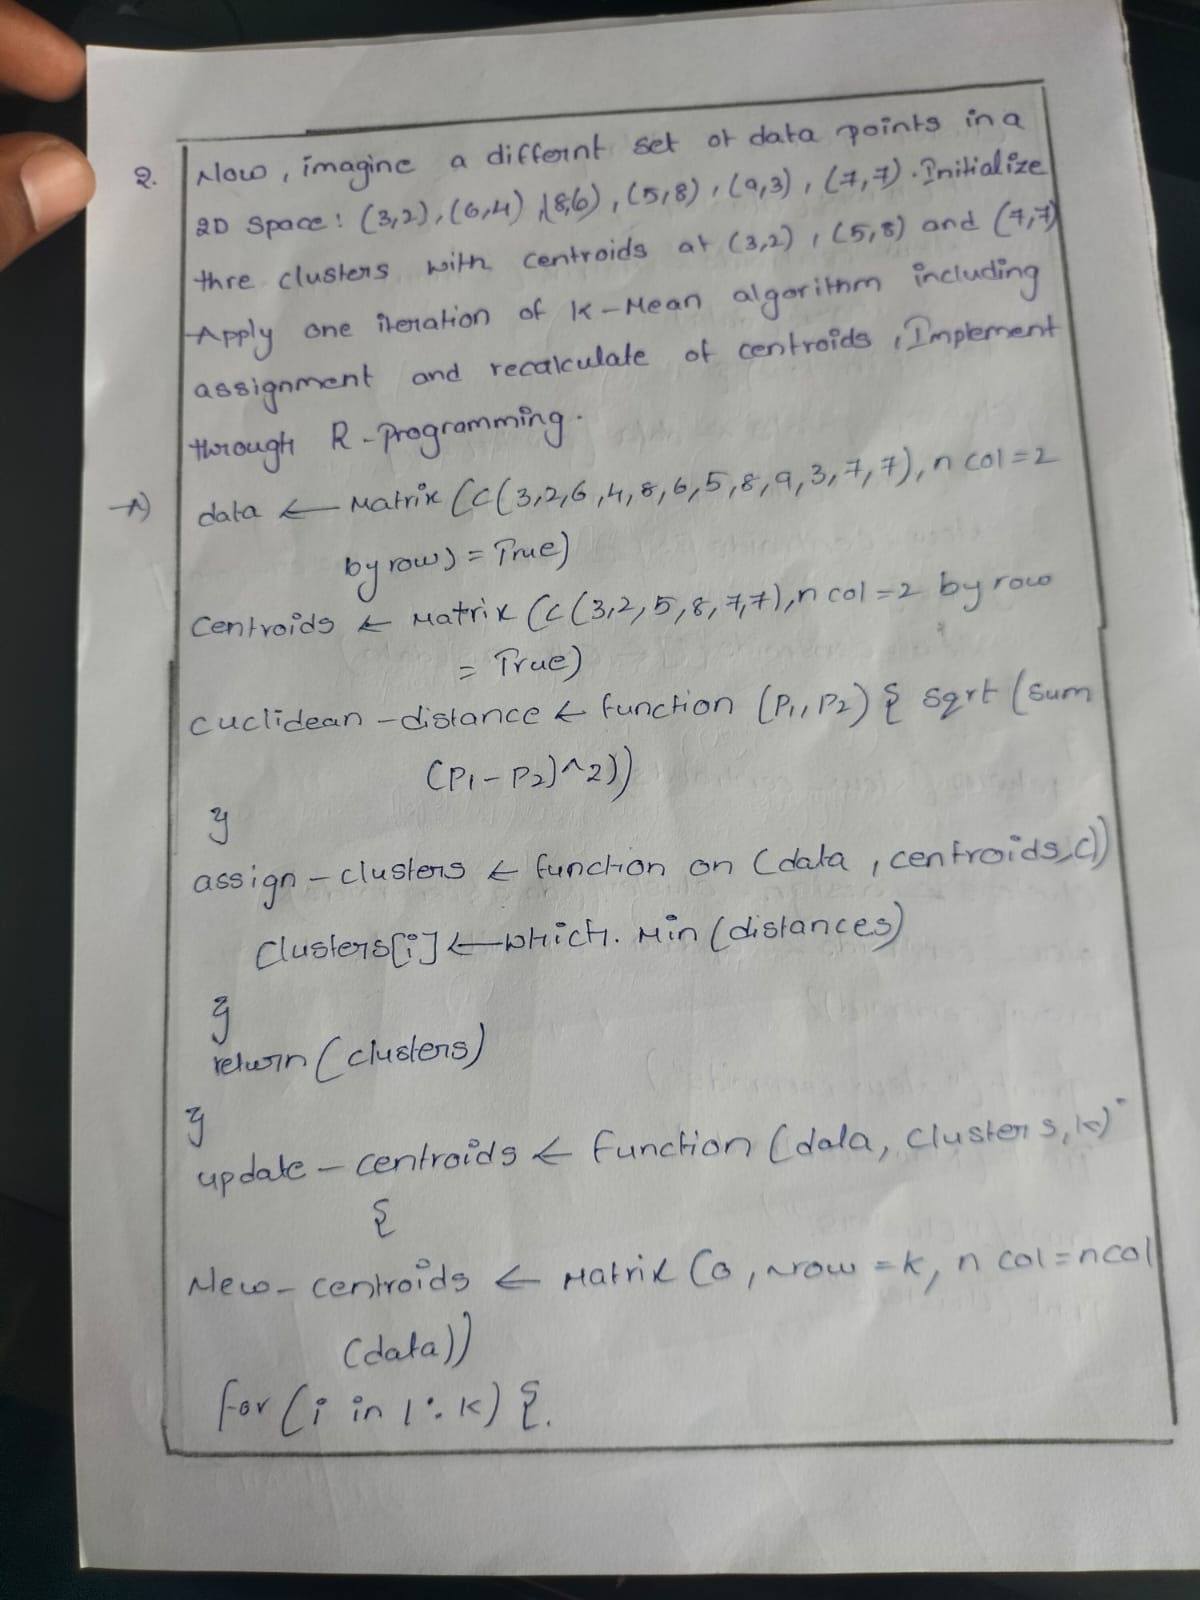 2. Now, imagine a differnt set of data points in a
2D Space: (3,2), (6,4) (8,6), (5,8), (9,3), (7,7). Initialize
thre clusters with centroids at (3,2), (5,8) and (7,7)
Apply one iteration of K-Mean algorithm including
assignment and recalculate of centroids, Implement
through R-Programming.
A) data ← Matrix (C(3,2,6,4,8,6,5,8,9,3,7,7), n col=2
by row) = True)
Centroids ← Matrix (C(3,2,5,8,7,7), n col=2 by row
= True)
cuclidean-distance ← function (P1, P2) { sqrt (sum
(P1 - P2)^2))
}
assign-clusters ← function on (data, centroids, c))
Clusters[i] ← which. Min (distances)
}
return (clusters)
}
update-centroids ← function (data, clusters, k)
{
New-centroids ← Matrix (0, Nrow = k, n col = ncol
(data))
for (i in 1:k) {.